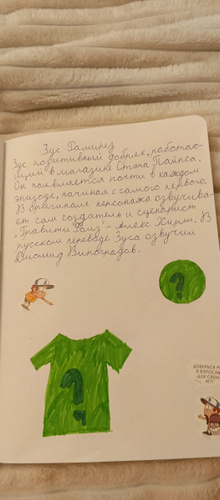 Зус Рамирез
Зус позитивный добряк, работаю-
щий в магазине Стэна Пайнса.
Он появляется почти в каждом
эпизоде, начиная с самого первого.
В оригинале персонажа озвучива-
ет сам создатель и сценарист
"Гравити Фолз" - Алекс Хирш. В
русском переводе Зуса озвучил
Диомид Виноградов.
?
?